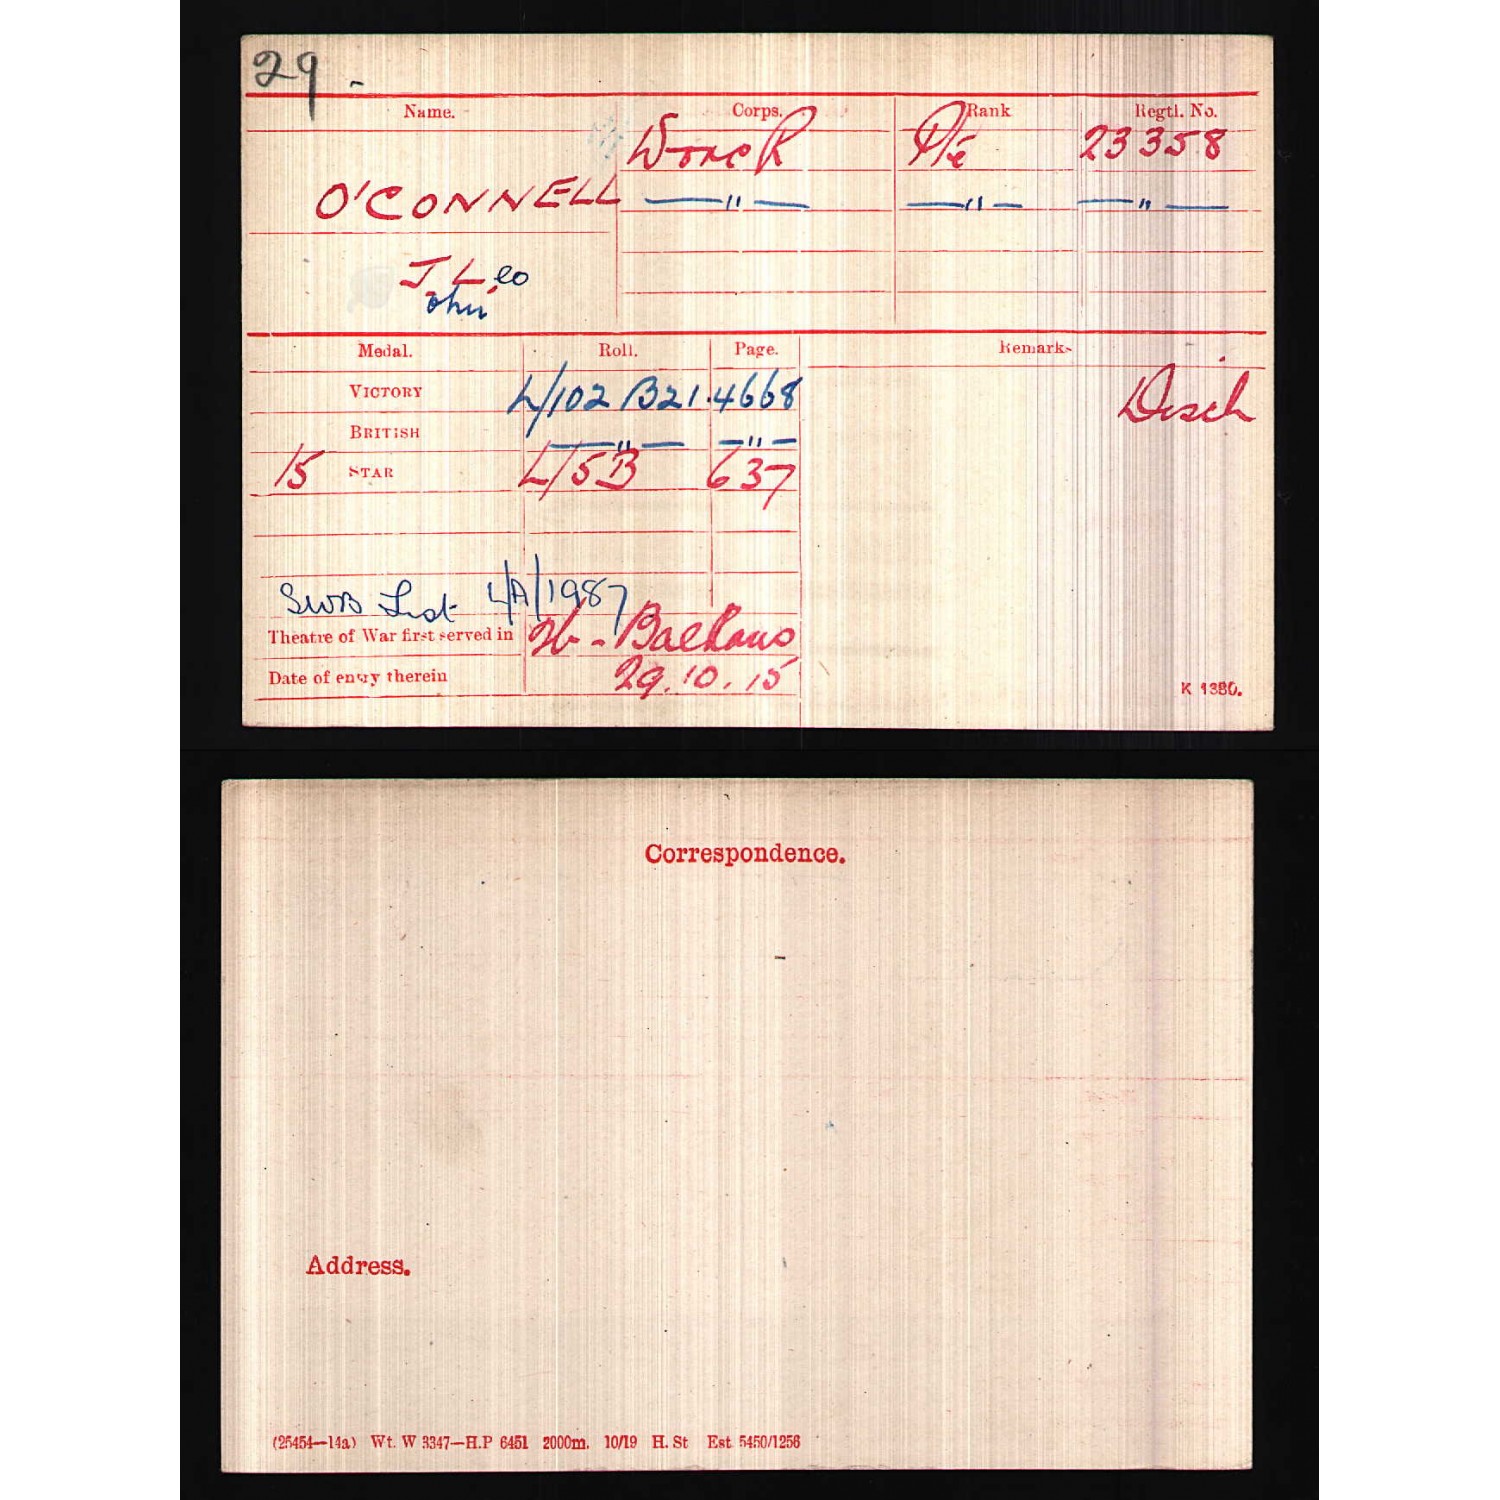 29 -
Name. Corps. Rank Regtl. No.
Worc R Pte 23358
O'CONNELL —"— —"— —"—
J Leo
ohn
Medal. Roll. Page. Remarks
VICTORY L/102 B21. 4668 Disch
BRITISH —"— —"—
15 STAR L/5B 637
SWB List L/A/1987
Theatre of War first served in 2b - Balkans
Date of entry therein 29.10.15
K 1380.
Correspondence.
Address.
(25454—14a) Wt. W 3347—H.P 6451 2000m. 10/19 H. St Est 5450/1256